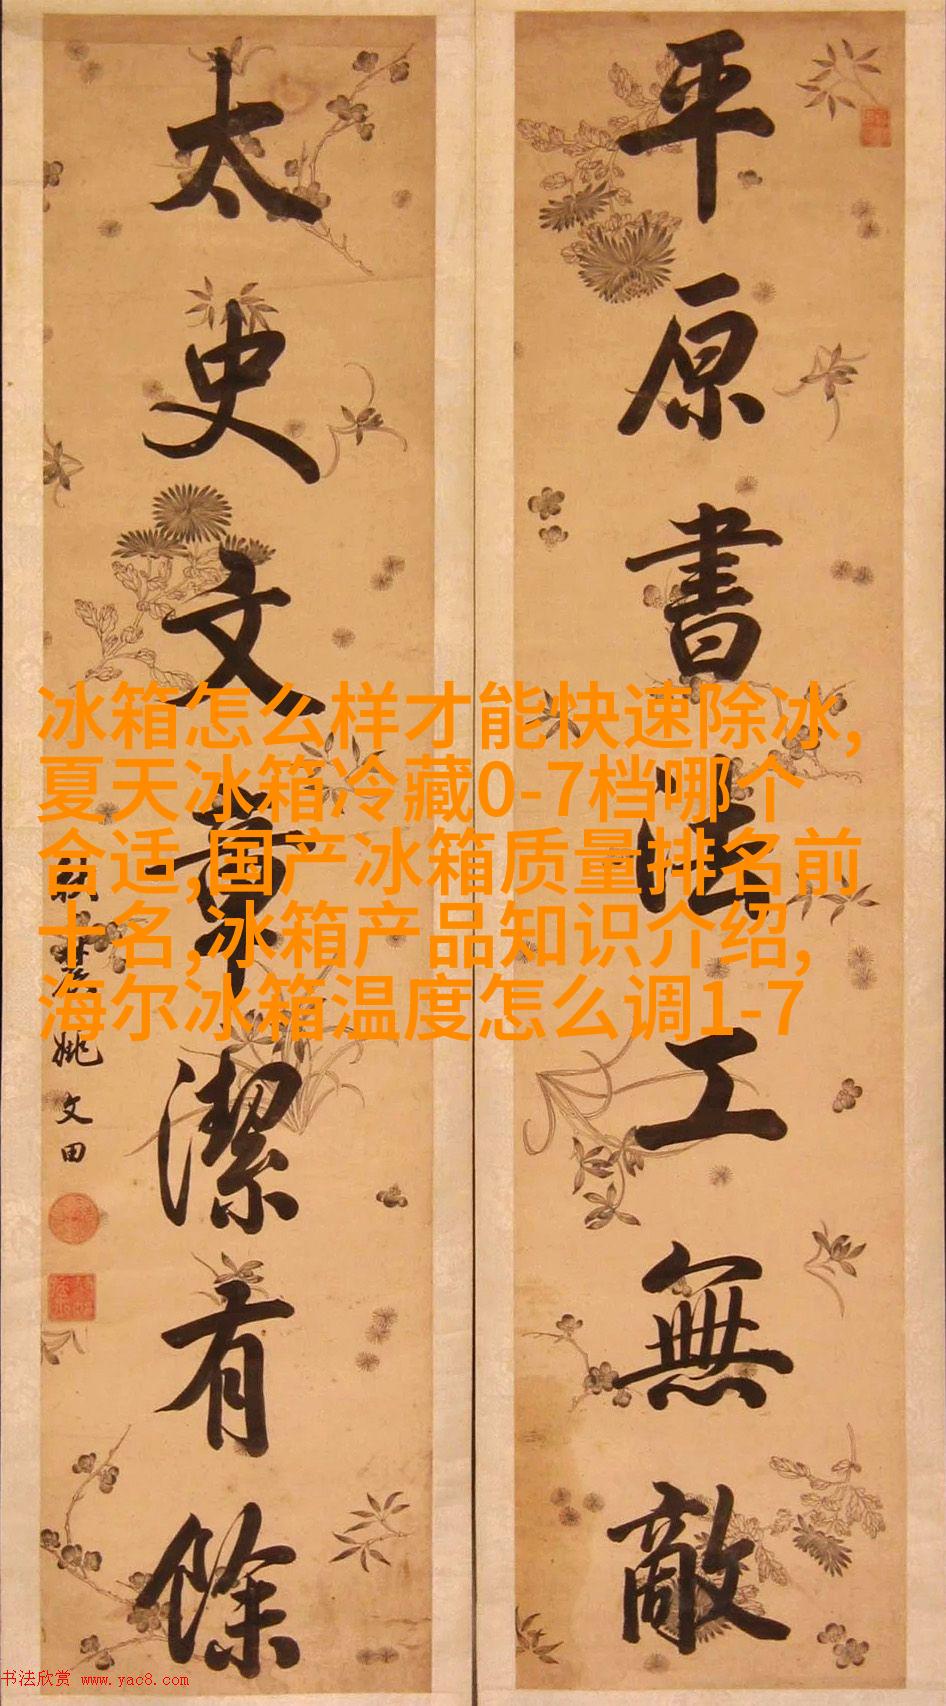 平原書法工無敵
太史文章潔有餘
姚文田
冰箱怎么样才能快速除冰,
夏天冰箱冷藏0-7档哪个
合适,国产冰箱质量排名前
十名,冰箱产品知识介绍,
海尔冰箱温度怎么调1-7
书法欣赏 www.yac8.com